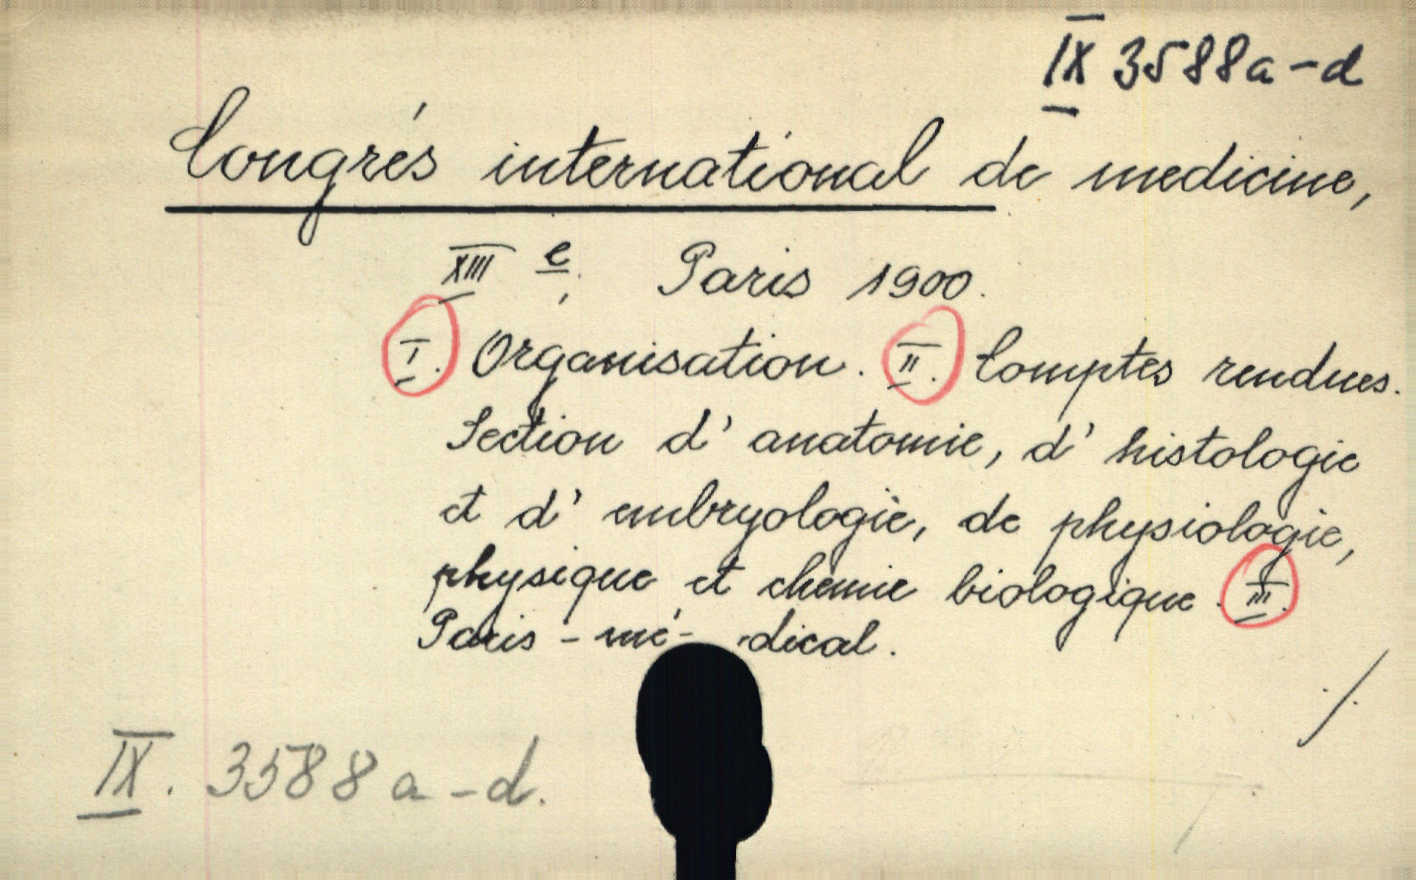 IX 3588a-d
Congrés international de medicine,
XIII e, Paris 1900.
I. Organisation. II. Comptes rendues.
Section d' anatomie, d' histologie
et d' embryologie, de physiologie,
physique et chemie biologique. III.
Paris - mé- dical.
IX. 3588 a-d.